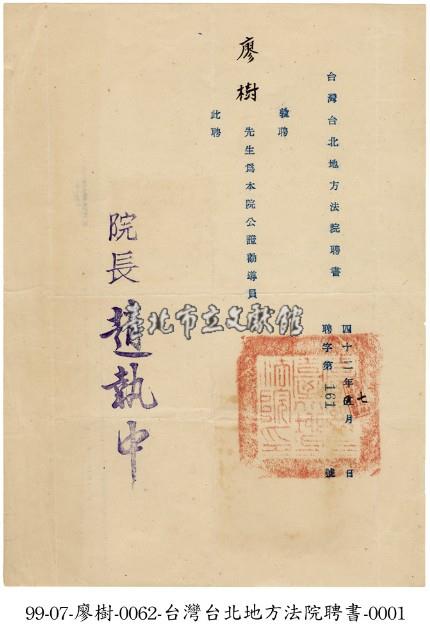 台灣台北地方法院聘書
四十二年七月 日
聘字第161號
敦聘
廖樹 先生爲本院公證勸導員
此聘
院長 趙執中
臺北市立文獻館
99-07-廖樹-0062-台灣台北地方法院聘書-0001